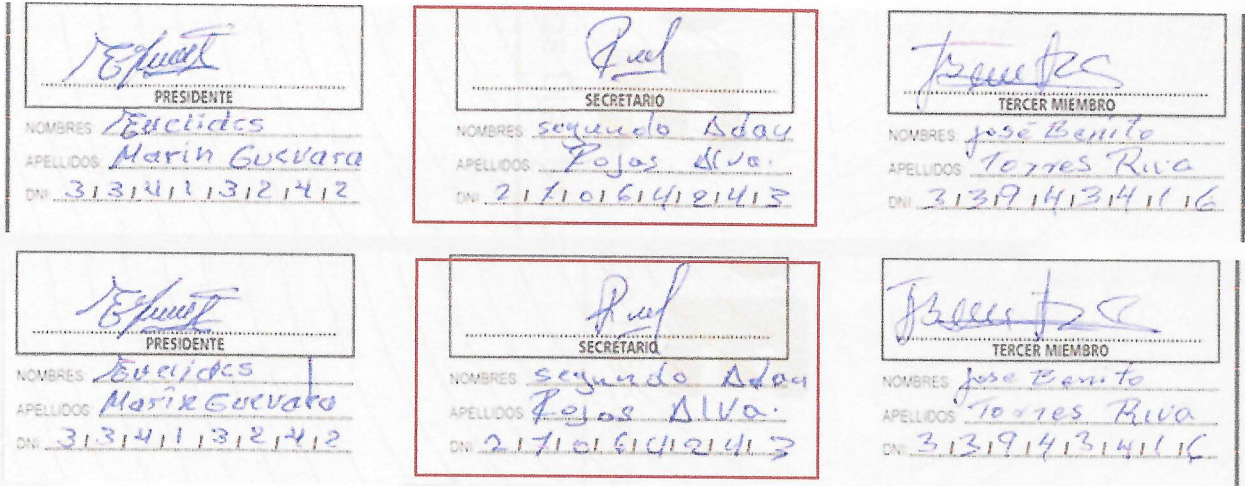 PRESIDENTE
NOMBRES Euclides
APELLIDOS Marin Guevara
DNI 33413242
SECRETARIO
NOMBRES segundo Aday
APELLIDOS Rojas Alva.
DNI 27064243
TERCER MIEMBRO
NOMBRES José Benito
APELLIDOS Torres Riva
DNI 33943416
PRESIDENTE
NOMBRES Euclides
APELLIDOS Marin Guevara
DNI 33413242
SECRETARIO
NOMBRES segundo Aday
APELLIDOS Rojas Alva.
DNI 27064243
TERCER MIEMBRO
NOMBRES Jose Benito
APELLIDOS Torres Riva
DNI 33943416